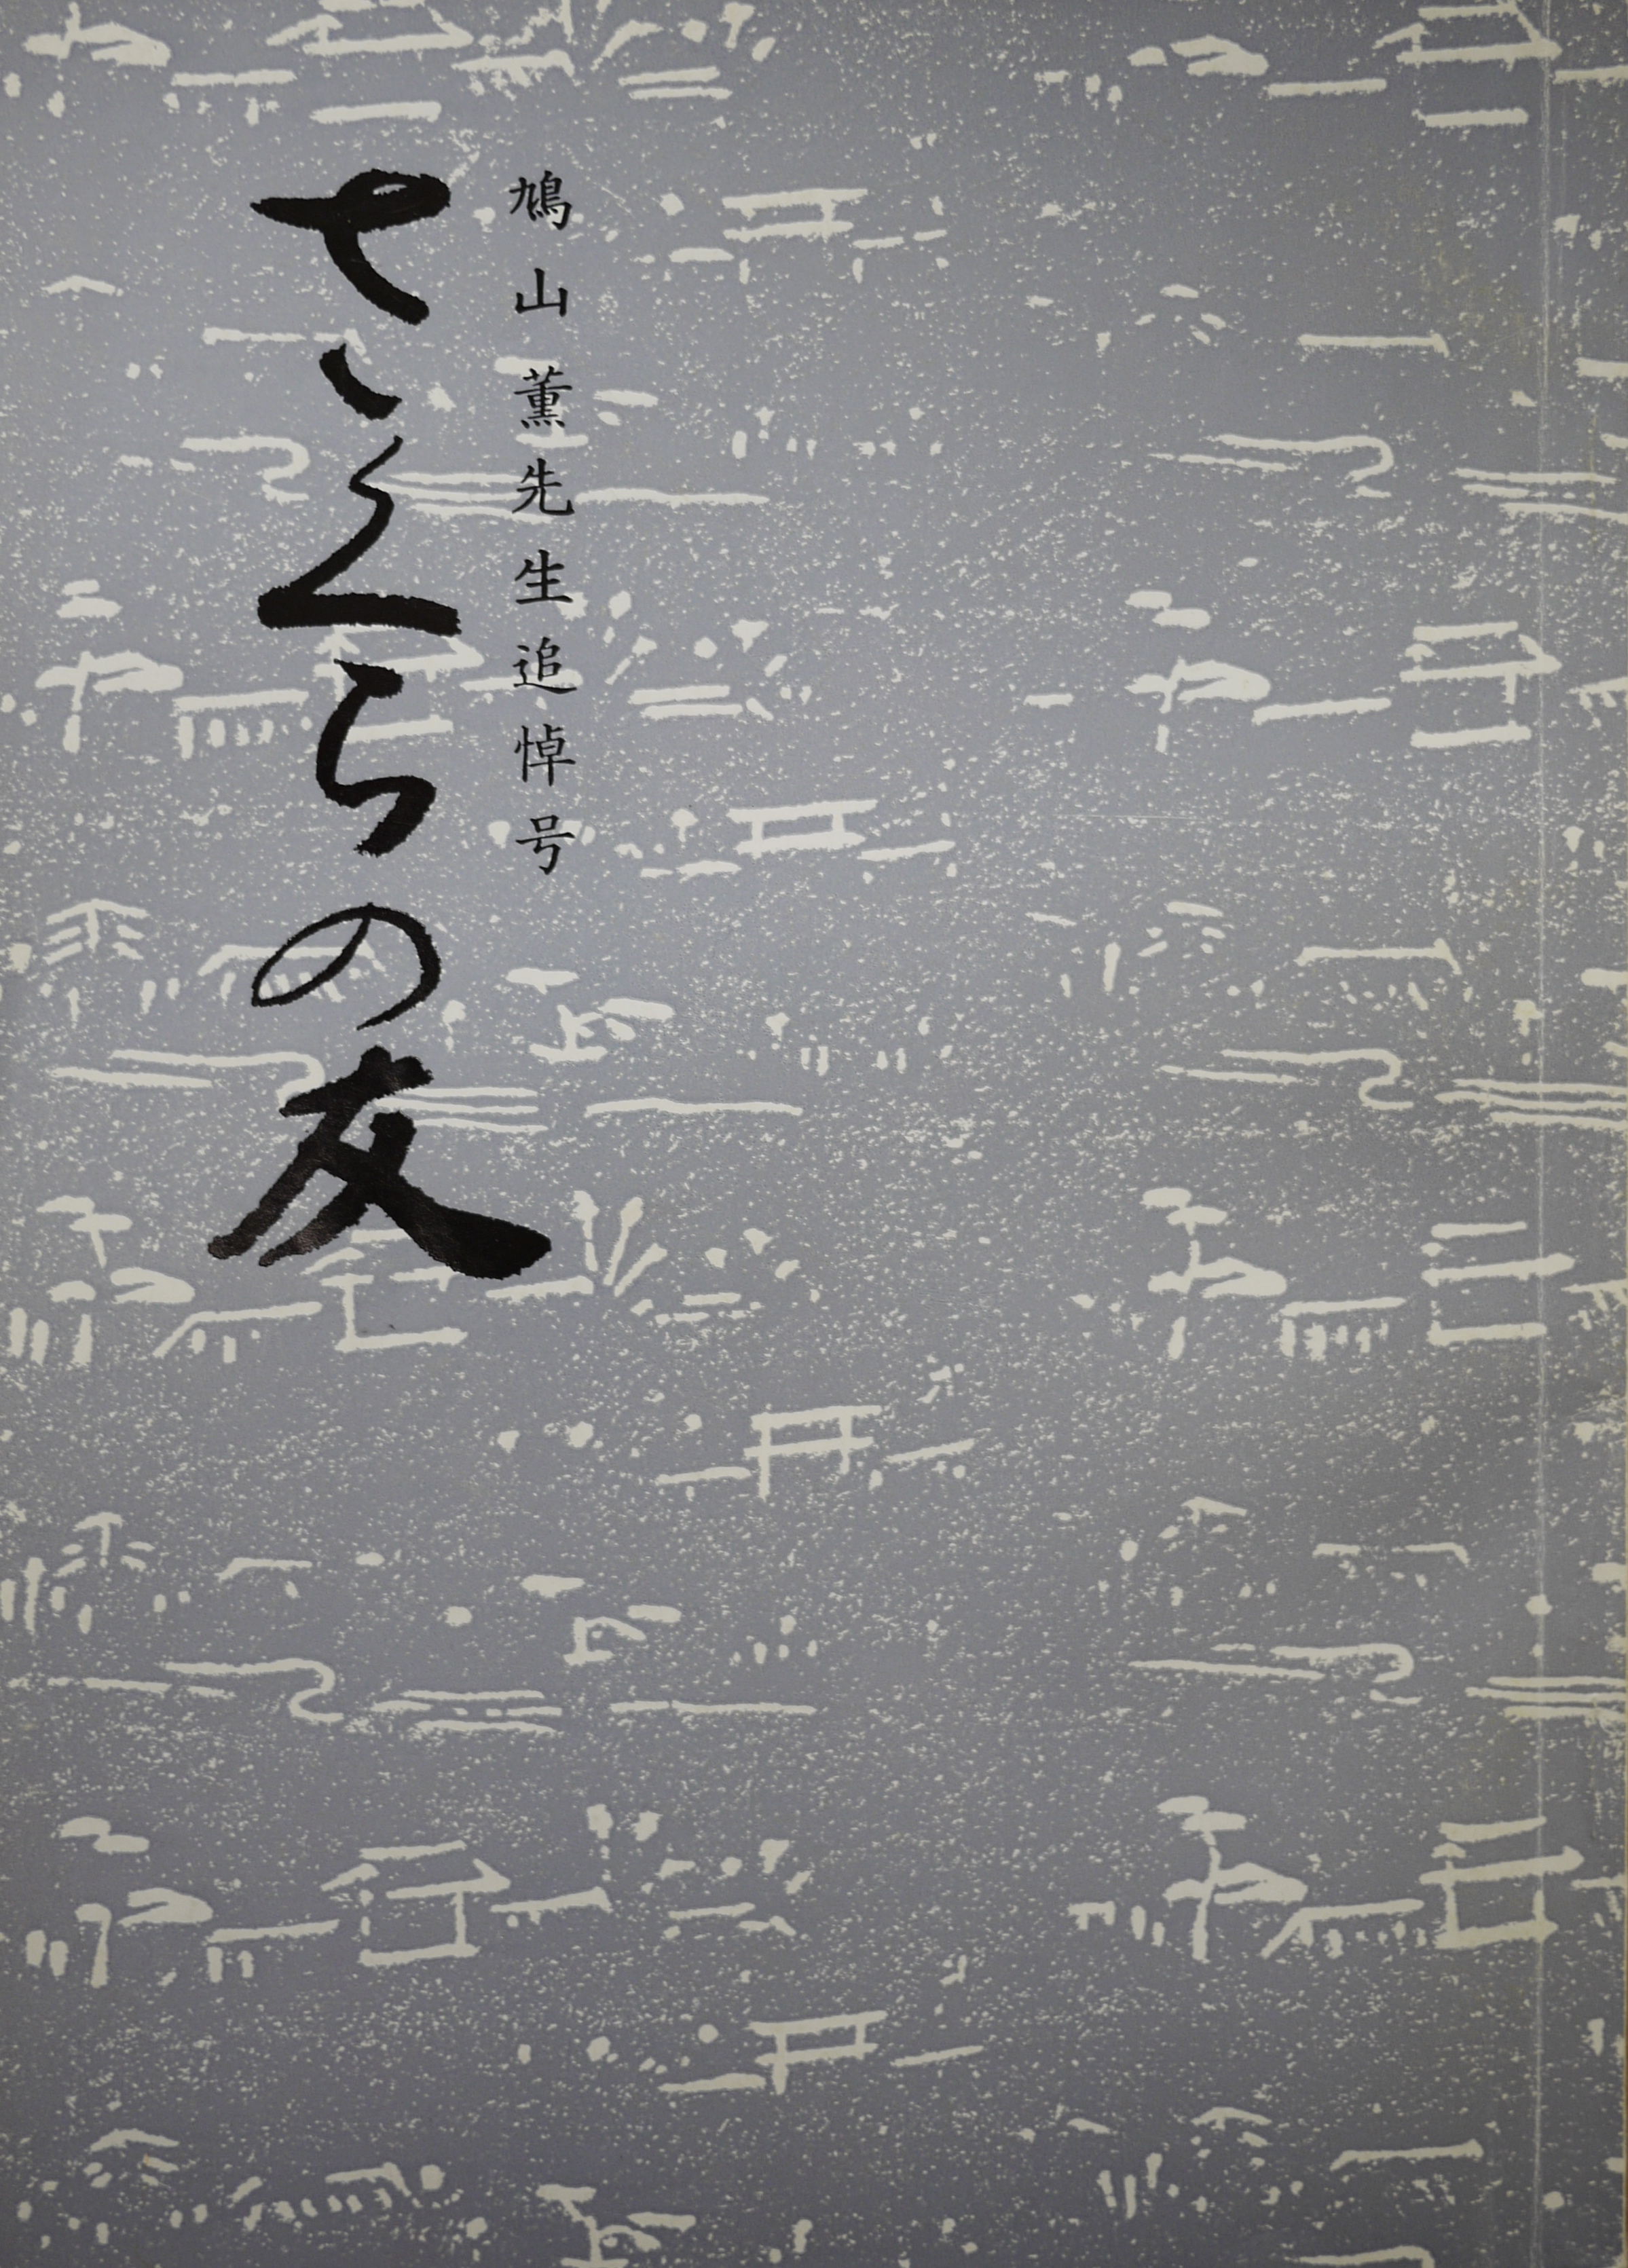 鳩山薫先生追悼号
さくらの友